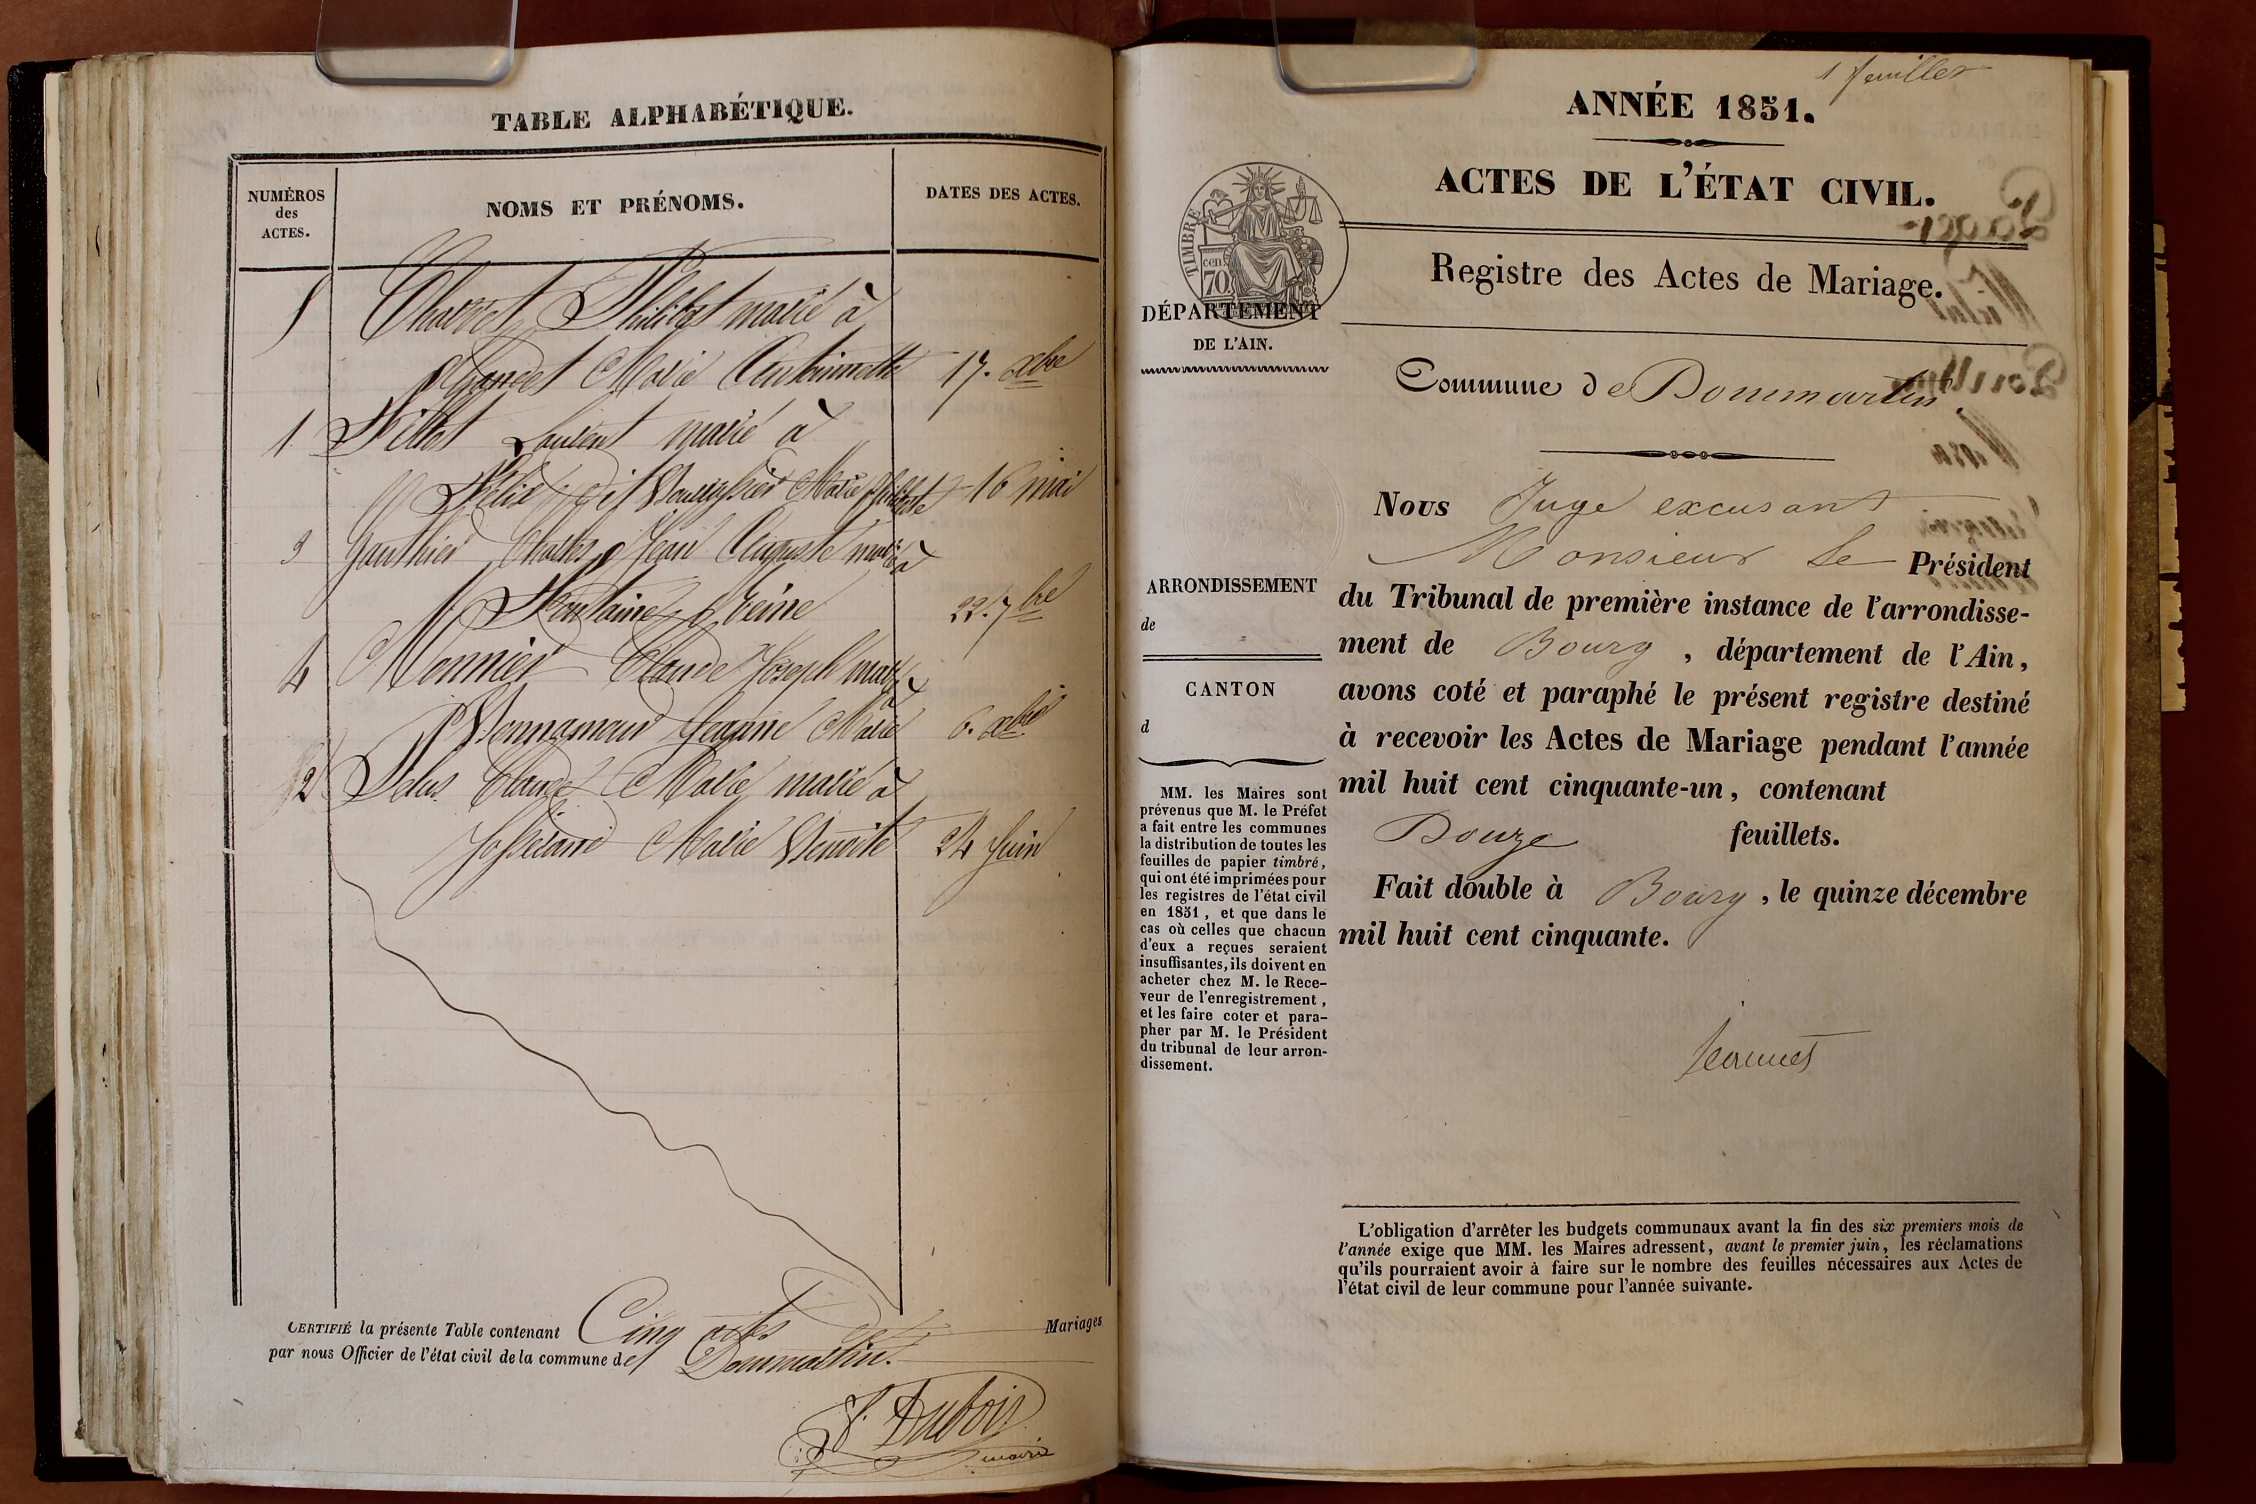 TABLE ALPHABÉTIQUE.
NUMÉROS
des
ACTES.
NOMS ET PRÉNOMS.
DATES DES ACTES.
5 Charvet Philibert marié à
Gandet Marie Antoinette 17. xbre
1 Fillet Laurent marié à
Félix dit Marie Philiberte 16 mai
3 Gauthier Charles Jean Auguste marié à
Fontaine Reine 22. 7bre
4 Monnier Claude Joseph marié à
Bonnamour Jeanne Marie 6. xbre
2 Pelus Claude Marie marié à
Josserand Marie Benoite 24 Juin
CERTIFIÉ la présente Table contenant Cinq actes de Mariages
par nous Officier de l'état civil de la commune de Dommartin.
F. Dubois
maire
1 feuillet
ANNÉE 1851.
ACTES DE L'ÉTAT CIVIL.
TIMBRE
cen.
70.
DÉPARTEMENT
DE L'AIN.
Registre des Actes de Mariage.
Commune de Dommartin
Nous Juge excusant
Monsieur le Président
du Tribunal de première instance de l'arrondisse-
ment de Bourg , département de l'Ain,
avons coté et paraphé le présent registre destiné
à recevoir les Actes de Mariage pendant l'année
mil huit cent cinquante-un, contenant
Douze feuillets.
Fait double à Bourg, le quinze décembre
mil huit cent cinquante.
ARRONDISSEMENT
de
CANTON
d
MM. les Maires sont
prévenus que M. le Préfet
a fait entre les communes
la distribution de toutes les
feuilles de papier timbré,
qui ont été imprimées pour
les registres de l'état civil
en 1851, et que dans le
cas où celles que chacun
d'eux a reçues seraient
insuffisantes, ils doivent en
acheter chez M. le Rece-
veur de l'enregistrement,
et les faire coter et para-
pher par M. le Président
du tribunal de leur arron-
dissement.
L'obligation d'arrêter les budgets communaux avant la fin des six premiers mois de
l'année exige que MM. les Maires adressent, avant le premier juin, les réclamations
qu'ils pourraient avoir à faire sur le nombre des feuilles nécessaires aux Actes de
l'état civil de leur commune pour l'année suivante.